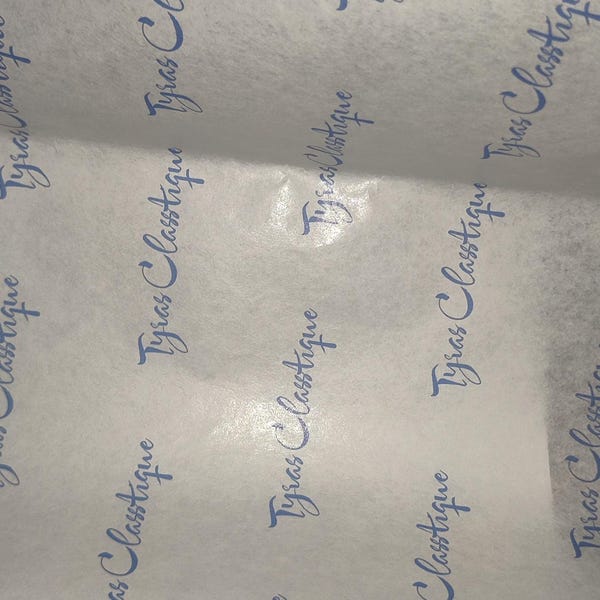 Tyras Classtique
Tyras Classtique
Tyras Classtique
Tyras Classtique
Tyras Classtique
Tyras Classtique
Tyras Classtique
Tyras Classtique
Classtique
Classtique
Classtique